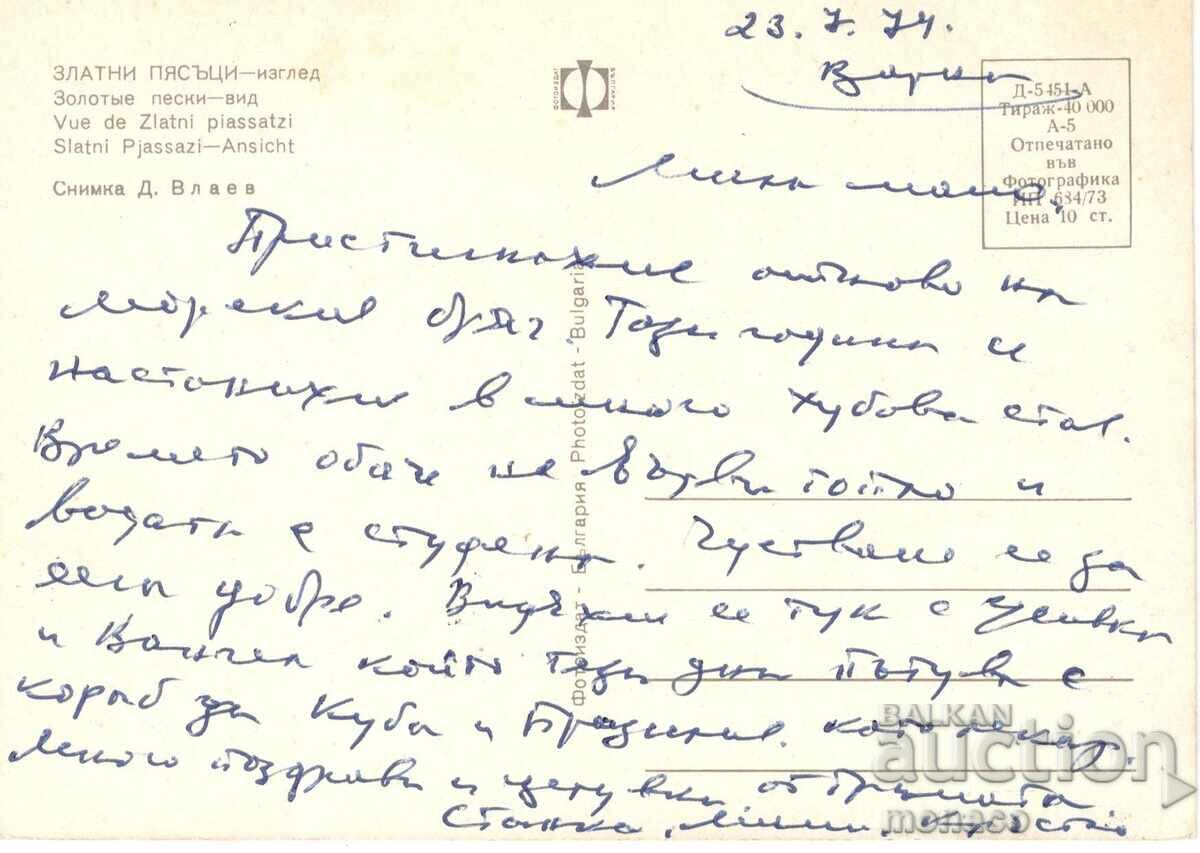 23.7.74.
Варна
ЗЛАТНИ ПЯСЪЦИ—изглед
Золотые пески—вид
Vue de Zlatni piassatzi
Slatni Pjassazi—Ansicht
Снимка Д. Влаев
ФОТОИЗДАТ
БЪЛГАРИЯ
Д-5451-А
Тираж-40 000
А-5
Отпечатано
във
Фотографика
ИП 684/73
Цена 10 ст.
Мила мамо,
Пристигнахме отново на
морския бряг Тази година се
настанихме в много хубова стая.
Времето обаче не е топло и
водата е студена. Чувстваме се
добре. Видяхме се тук с
и Вангел който тези дни пътува с
кораб за Куба и Бразилия като лекар.
Много поздрави и целувки от тримата
Станка,
Фотоиздат - България Photoizdat - "Bulgaria"
BALKAN
auction
monaco